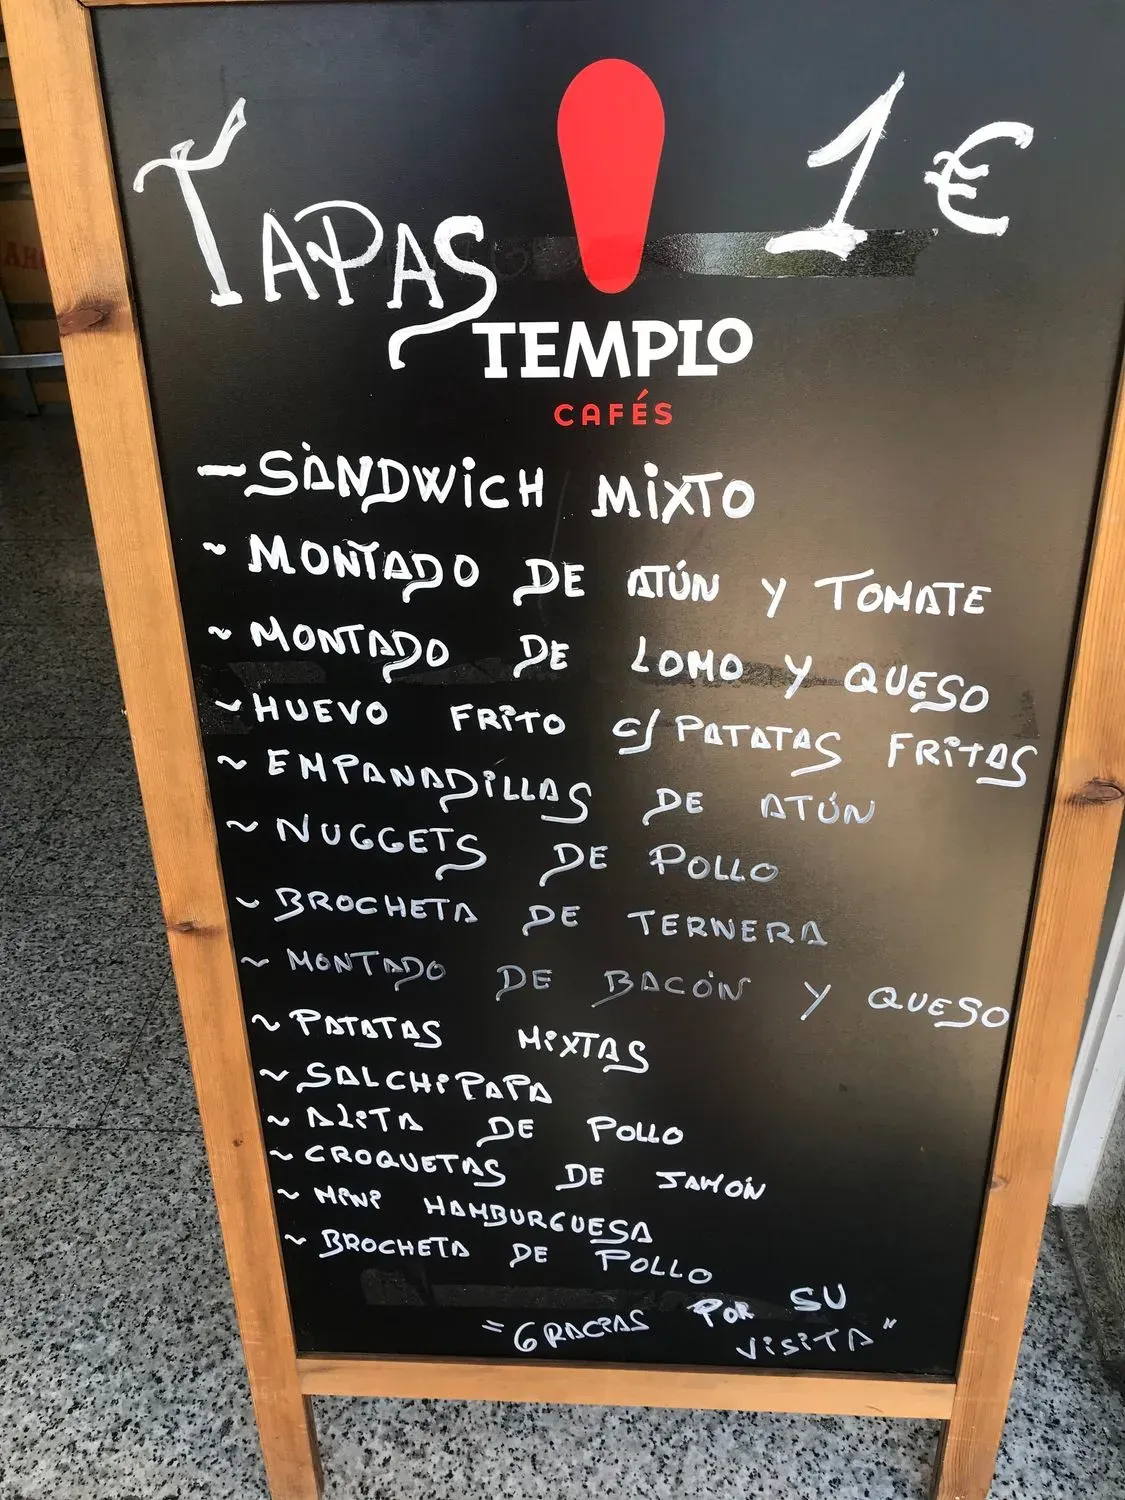 TAPAS 1€
TEMPLO
CAFÉS
- SANDWICH MIXTO
~ MONTADO DE ATÚN Y TOMATE
~ MONTADO DE LOMO Y QUESO
~ HUEVO FRITO c/ PATATAS FRITAS
~ EMPANADILLAS DE ATÚN
~ NUGGETS DE POLLO
~ BROCHETA DE TERNERA
~ MONTADO DE BACÓN Y QUESO
~ PATATAS MIXTAS
~ SALCHIPAPA
~ ALITA DE POLLO
~ CROQUETAS DE JAMÓN
~ MINI HAMBURGUESA
~ BROCHETA DE POLLO
= GRACIAS POR SU
VISITA"